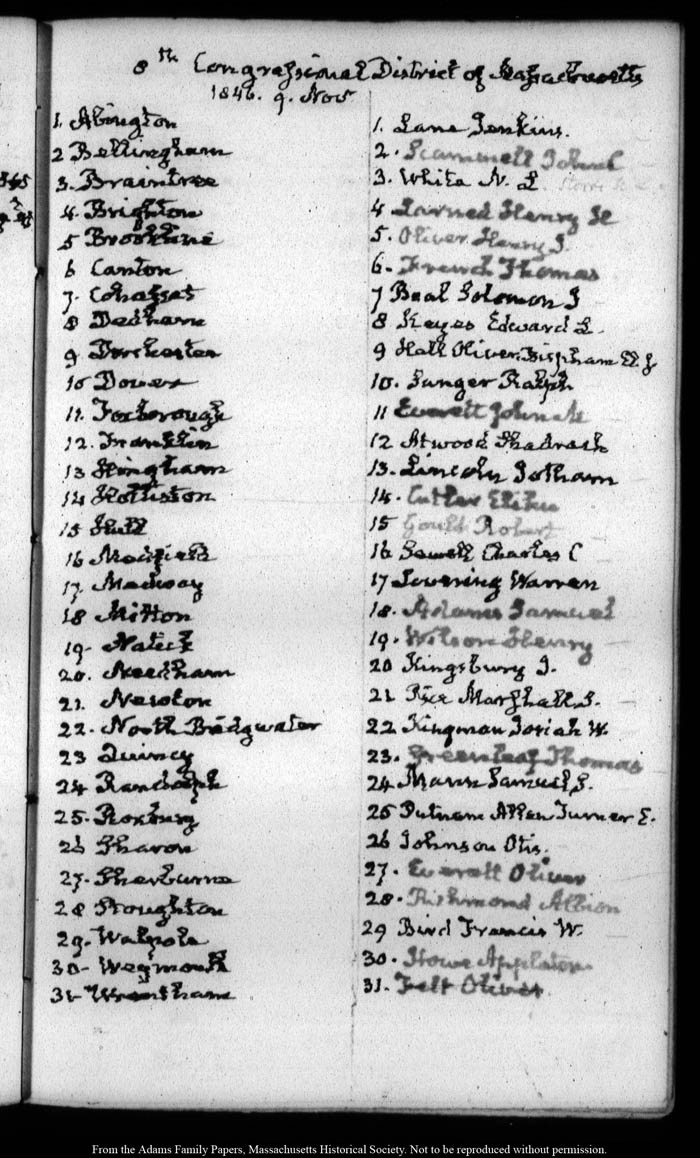 8th Congressional District of Massachusetts
1846. 9. Nov
1. Abington
2 Bellingham
3. Braintree
4. Brighton
5 Brookline
6 Canton
7. Cohasset
8 Dedham
9 Dorchester
10 Dover
11. Foxborough
12. Franklin
13 Hingham
14 Holliston
15 Hull
16 Medfield
17. Medway
18 Milton
19. Natick
20. Needham
21. Newton
22. North Bridgwater
23 Quincy
24 Randolph
25. Roxbury
26 Sharon
27. Sherburne
28 Stoughton
29. Walpole
30- Weymouth
31- Wrentham
1. Lane Jenkins.
2. Scammell John
3. White N. L
4 Larned Henry
5. Oliver Henry J.
6. French Thomas
7 Beal Solomon J
8 Keyes Edward L.
9 Hall Oliver. Bispham
10. Sanger Ralph
11 Everett John
12 Atwood Shadrach
13. Lincoln Jotham
14. Cutler Elihu
15 Gould Robert
16 Sewell Charles C
17 Lovering Warren
18. Adams Samuel
19. Wilson Henry
20 Kingsbury J.
21 Rice Marshall S.
22 Kingman Josiah W.
23. Greenleaf Thomas
24 Mann Samuel S.
25 Putnam Allen Turner E.
26 Johnson Otis.
27. Everett Oliver
28. Richmond Albion
29 Bird Francis W.
30. Howe Appleton
31. Felt Oliver.
From the Adams Family Papers, Massachusetts Historical Society. Not to be reproduced without permission.